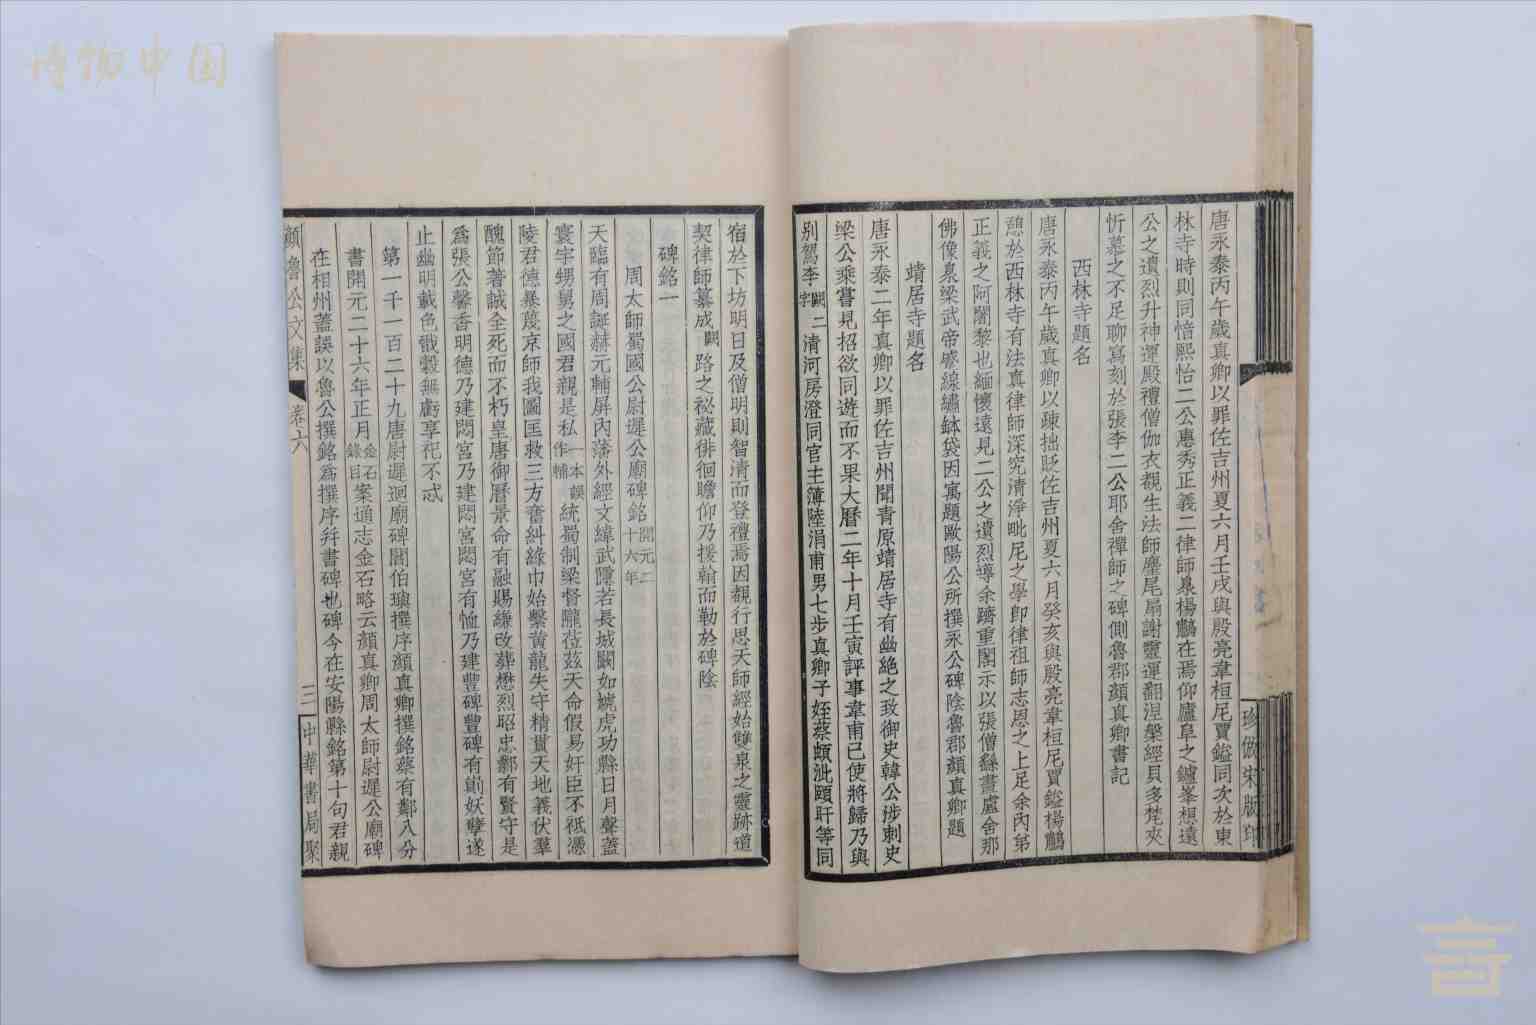 博物中国
唐永泰丙午歲真卿以罪佐吉州夏六月壬戌與殷亮韋桓尼賈鎰同次於東
林寺時則同愔熙怡二公惠秀正義二律師泉楊鸜在焉仰廬阜之鑪峯想遠
公之遺烈升神運殿禮僧伽衣覩生法師麈尾扇謝靈運翻涅槃經貝多梵夾
忻慕之不足聊寫刻於張李二公耶舍禪師之碑側魯郡顏真卿書記
西林寺題名
唐永泰丙午歲真卿以疎拙貶佐吉州夏六月癸亥與殷亮韋桓尼賈鎰楊鸜
憩於西林寺有法真律師深究清淨毗尼之學即律祖師志恩之上足余內弟
正義之阿闍黎也緬懷遠見二公之遺烈導余躋重閣示以張僧繇畫盧舍那
佛像泉梁武帝蹙線繡缽袋因寓題歐陽公所撰永公碑陰魯郡顏真卿題
靖居寺題名
唐永泰二年真卿以罪佐吉州聞青原靖居寺有幽絶之致御史韓公涉刺史
梁公乘嘗見招欲同遊而不果大曆二年十月壬寅評事韋甫已使將歸乃與
別駕李闕二字清河房澄同官主簿陸涓甫男七步真卿子姪蔡頗泚頤盱等同
珍倣宋版印
宿於下坊明日及僧明則智清而登禮焉因覩行思天師經始雙泉之靈跡道
契律師纂成闕路之祕藏徘徊瞻仰乃援翰而勒於碑陰
碑銘一
周太師蜀國公尉遲公廟碑銘開元二十六年
天臨有周誕赫元輔屏內藩外經文緯武隱若長城闞如虓虎功縣日月聲蓋
寰宇甥舅之國君親是私一本誤作補統蜀制梁督隴莅茲天命假易奸臣不祗憑
陵君德暴蔑京師我圖匡救三方奮糾綠巾始繫黃龍失守精貫天地義伏羣
醜節著誠全死而不朽皇唐御曆景命有融賜縑改葬懋烈昭忠鄴有賢守是
為張公馨香明德乃建閟宮乃建閟宮閟宮有恤乃建豐碑豐碑有
妖孽遂
止幽明載色戩穀無虧享祀不忒
第一千一百二十九唐尉遲迥廟碑閻伯璵撰序顏真卿撰銘蔡有鄰八分
書開元二十六年正月金石錄目案通志金石略云顏真卿周太師尉遲公廟碑
在相州蓋誤以魯公撰銘為撰序并書碑也碑今在安陽縣銘第十句君親
顏魯公文集
卷六
三
中華書局聚